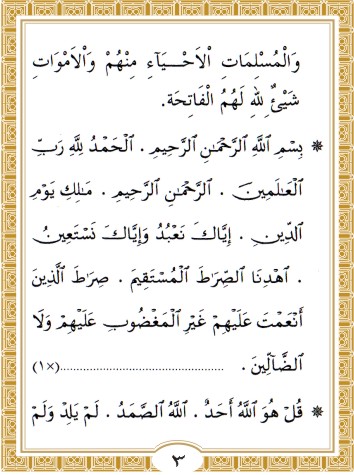 وَالْمُسْلِمَاتِ الْأَحْيَآءِ مِنْهُمْ وَالْأَمْوَاتِ
شَيْئٌ لِلّٰهِ لَهُمُ الْفَاتِحَة.
❋ بِسْمِ اللّٰهِ الرَّحْمٰنِ الرَّحِيمِ . الْحَمْدُ لِلّٰهِ رَبِّ
الْعَالَمِينَ . الرَّحْمٰنِ الرَّحِيمِ . مَالِكِ يَوْمِ
الدِّينِ . إِيَّاكَ نَعْبُدُ وَإِيَّاكَ نَسْتَعِينُ
. اهْدِنَا الصِّرَاطَ الْمُسْتَقِيمَ . صِرَاطَ الَّذِينَ
أَنْعَمْتَ عَلَيْهِمْ غَيْرِ الْمَغْضُوبِ عَلَيْهِمْ وَلَا
الضَّآلِّينَ . ........................................(×١)
❋ قُلْ هُوَ اللّٰهُ أَحَدٌ . اللّٰهُ الصَّمَدُ . لَمْ يَلِدْ وَلَمْ
٣